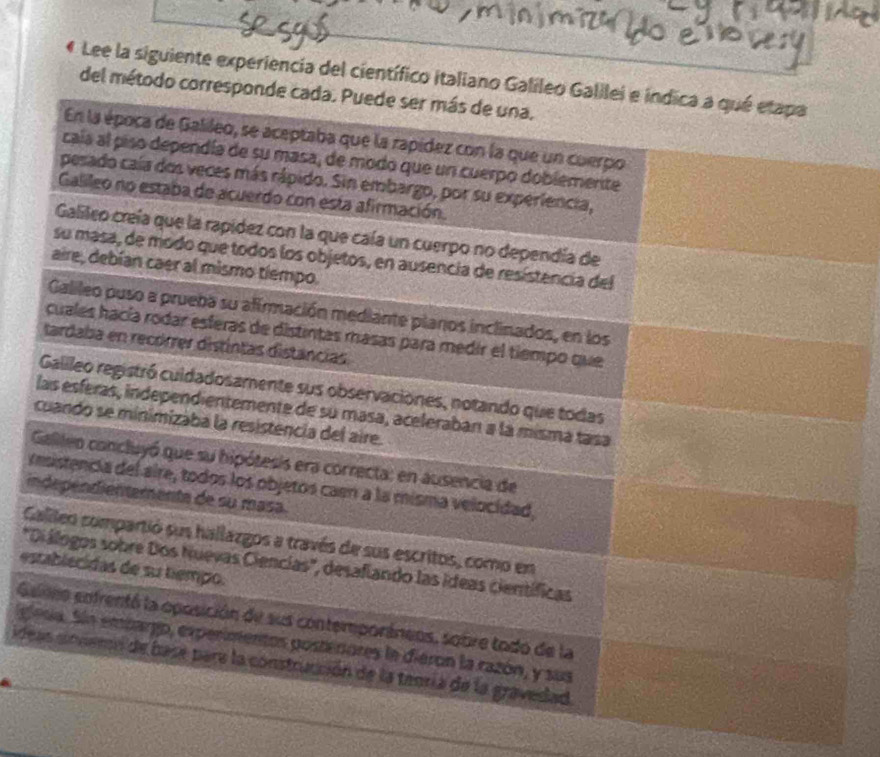 sesgos
minimizando
4 Lee la siguiente experiencia del científico italiano Galileo Galilei e indica a qué etapa
del método corresponde cada. Puede ser más de una.
En la época de Galileo, se aceptaba que la rapidez con la que un cuerpo
caía al piso dependía de su masa, de modo que un cuerpo doblemente
pesado caía dos veces más rápido. Sin embargo, por su experiencia,
Galileo no estaba de acuerdo con esta afirmación.
Galileo creía que la rapidez con la que caía un cuerpo no dependía de
su masa, de modo que todos los objetos, en ausencia de resistencia del
aire, debían caer al mismo tiempo.
Galileo puso a prueba su afirmación mediante planos inclinados, en los
cuales hacía rodar esferas de distintas masas para medir el tiempo que
tardaba en recorrer distintas distancias.
Galileo registró cuidadosamente sus observaciones, notando que todas
las esferas, independientemente de su masa, aceleraban a la misma tasa
cuando se minimizaba la resistencia del aire.
Galileo concluyó que su hipótesis era correcta: en ausencia de
resistencia del aire, todos los objetos caen a la misma velocidad,
independientemente de su masa.
Galileo compartió sus hallazgos a través de sus escritos, como en
"Diálogos sobre Dos Nuevas Ciencias", desafiando las ideas científicas
establecidas de su tiempo.
Galileo enfrentó la oposición de sus contemporáneos, sobre todo de la
Iglesia. Sin embargo, experimentos posteriores le dieron la razón, y sus
ideas sirvieron de base para la construcción de la teoría de la gravedad.